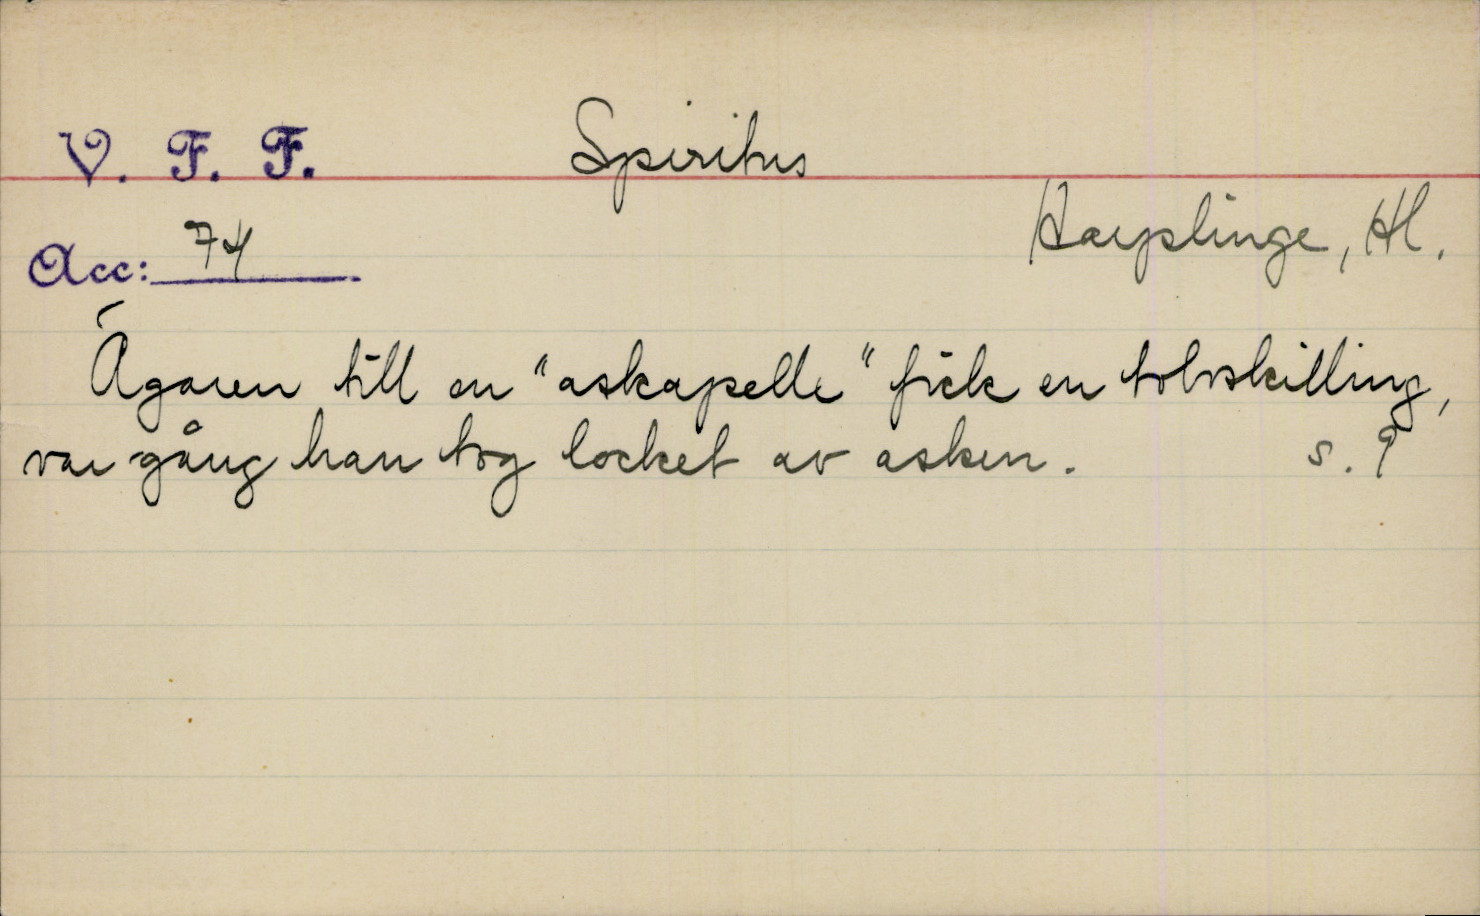 V. F. F.
Spiritus
Harplinge, Hl.
Acc: 74
Ägaren till en "askapelle" fick en tolvskilling,
var gång han tog locket av asken. s. 9